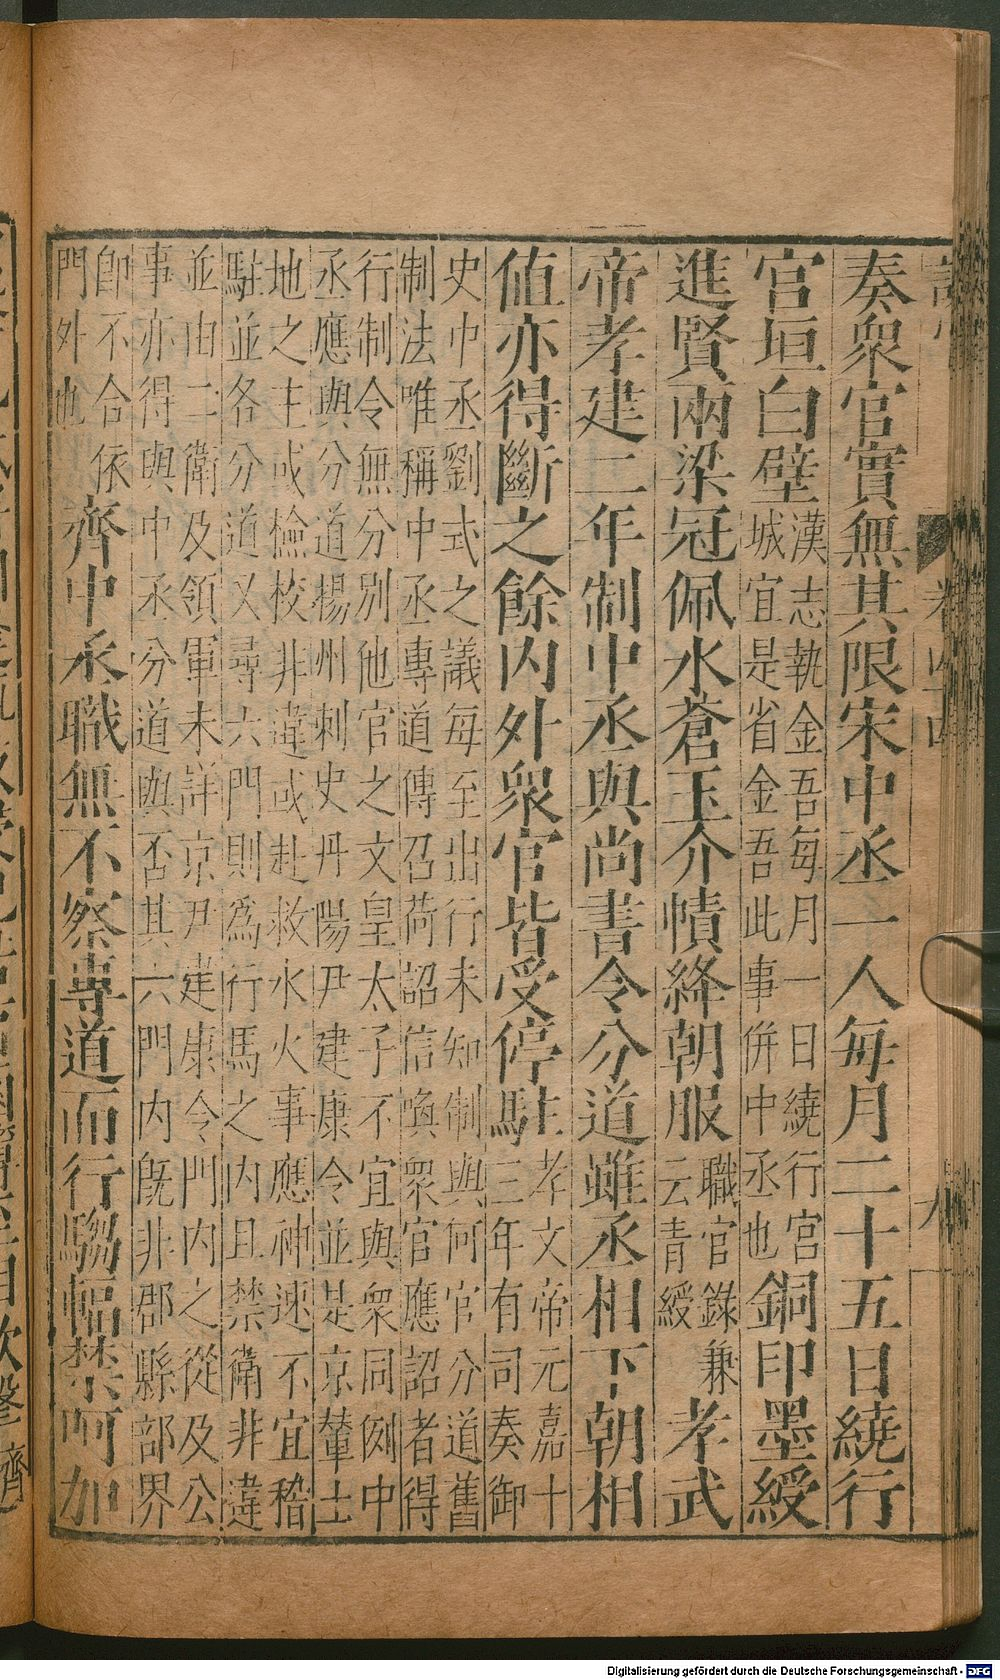 奏衆官實無其限宋中丞一人每月二十五日繞行
官垣白壁
漢志執金吾每月一日繞行宮
城宜是省金吾此事併中丞也
銅印墨綬
進賢兩梁冠佩水蒼玉介幘絳朝服
職官錄兼
云青綬
孝武
帝孝建二年制中丞與尚書令分道雖丞相下朝相
値亦得斷之餘内外衆官皆受停駐
孝文帝元嘉十
三年有司奏御
史中丞劉式之議每至出行未知制與何官分道舊
制法唯稱中丞專道傳召荷詔信喚衆官應詔者得
行制令無分别他官之文皇太子不宜與衆同例中
丞應與分道揚州刺史丹陽尹建康令並是京輦土
地之主或檢校非違或赴救水火事應神速不宜稽
駐並各分道又尋六門則爲行馬之内且禁衛非違
並由二衛及領軍未詳京尹建康令門内之從及公
事亦得與中丞分道與否其六門内旣非郡縣部界
卽不合依
門外也
齊中丞職無不察專道而行騶輻禁呵加
Digitalisierung gefördert durch die Deutsche Forschungsgemeinschaft - DFG